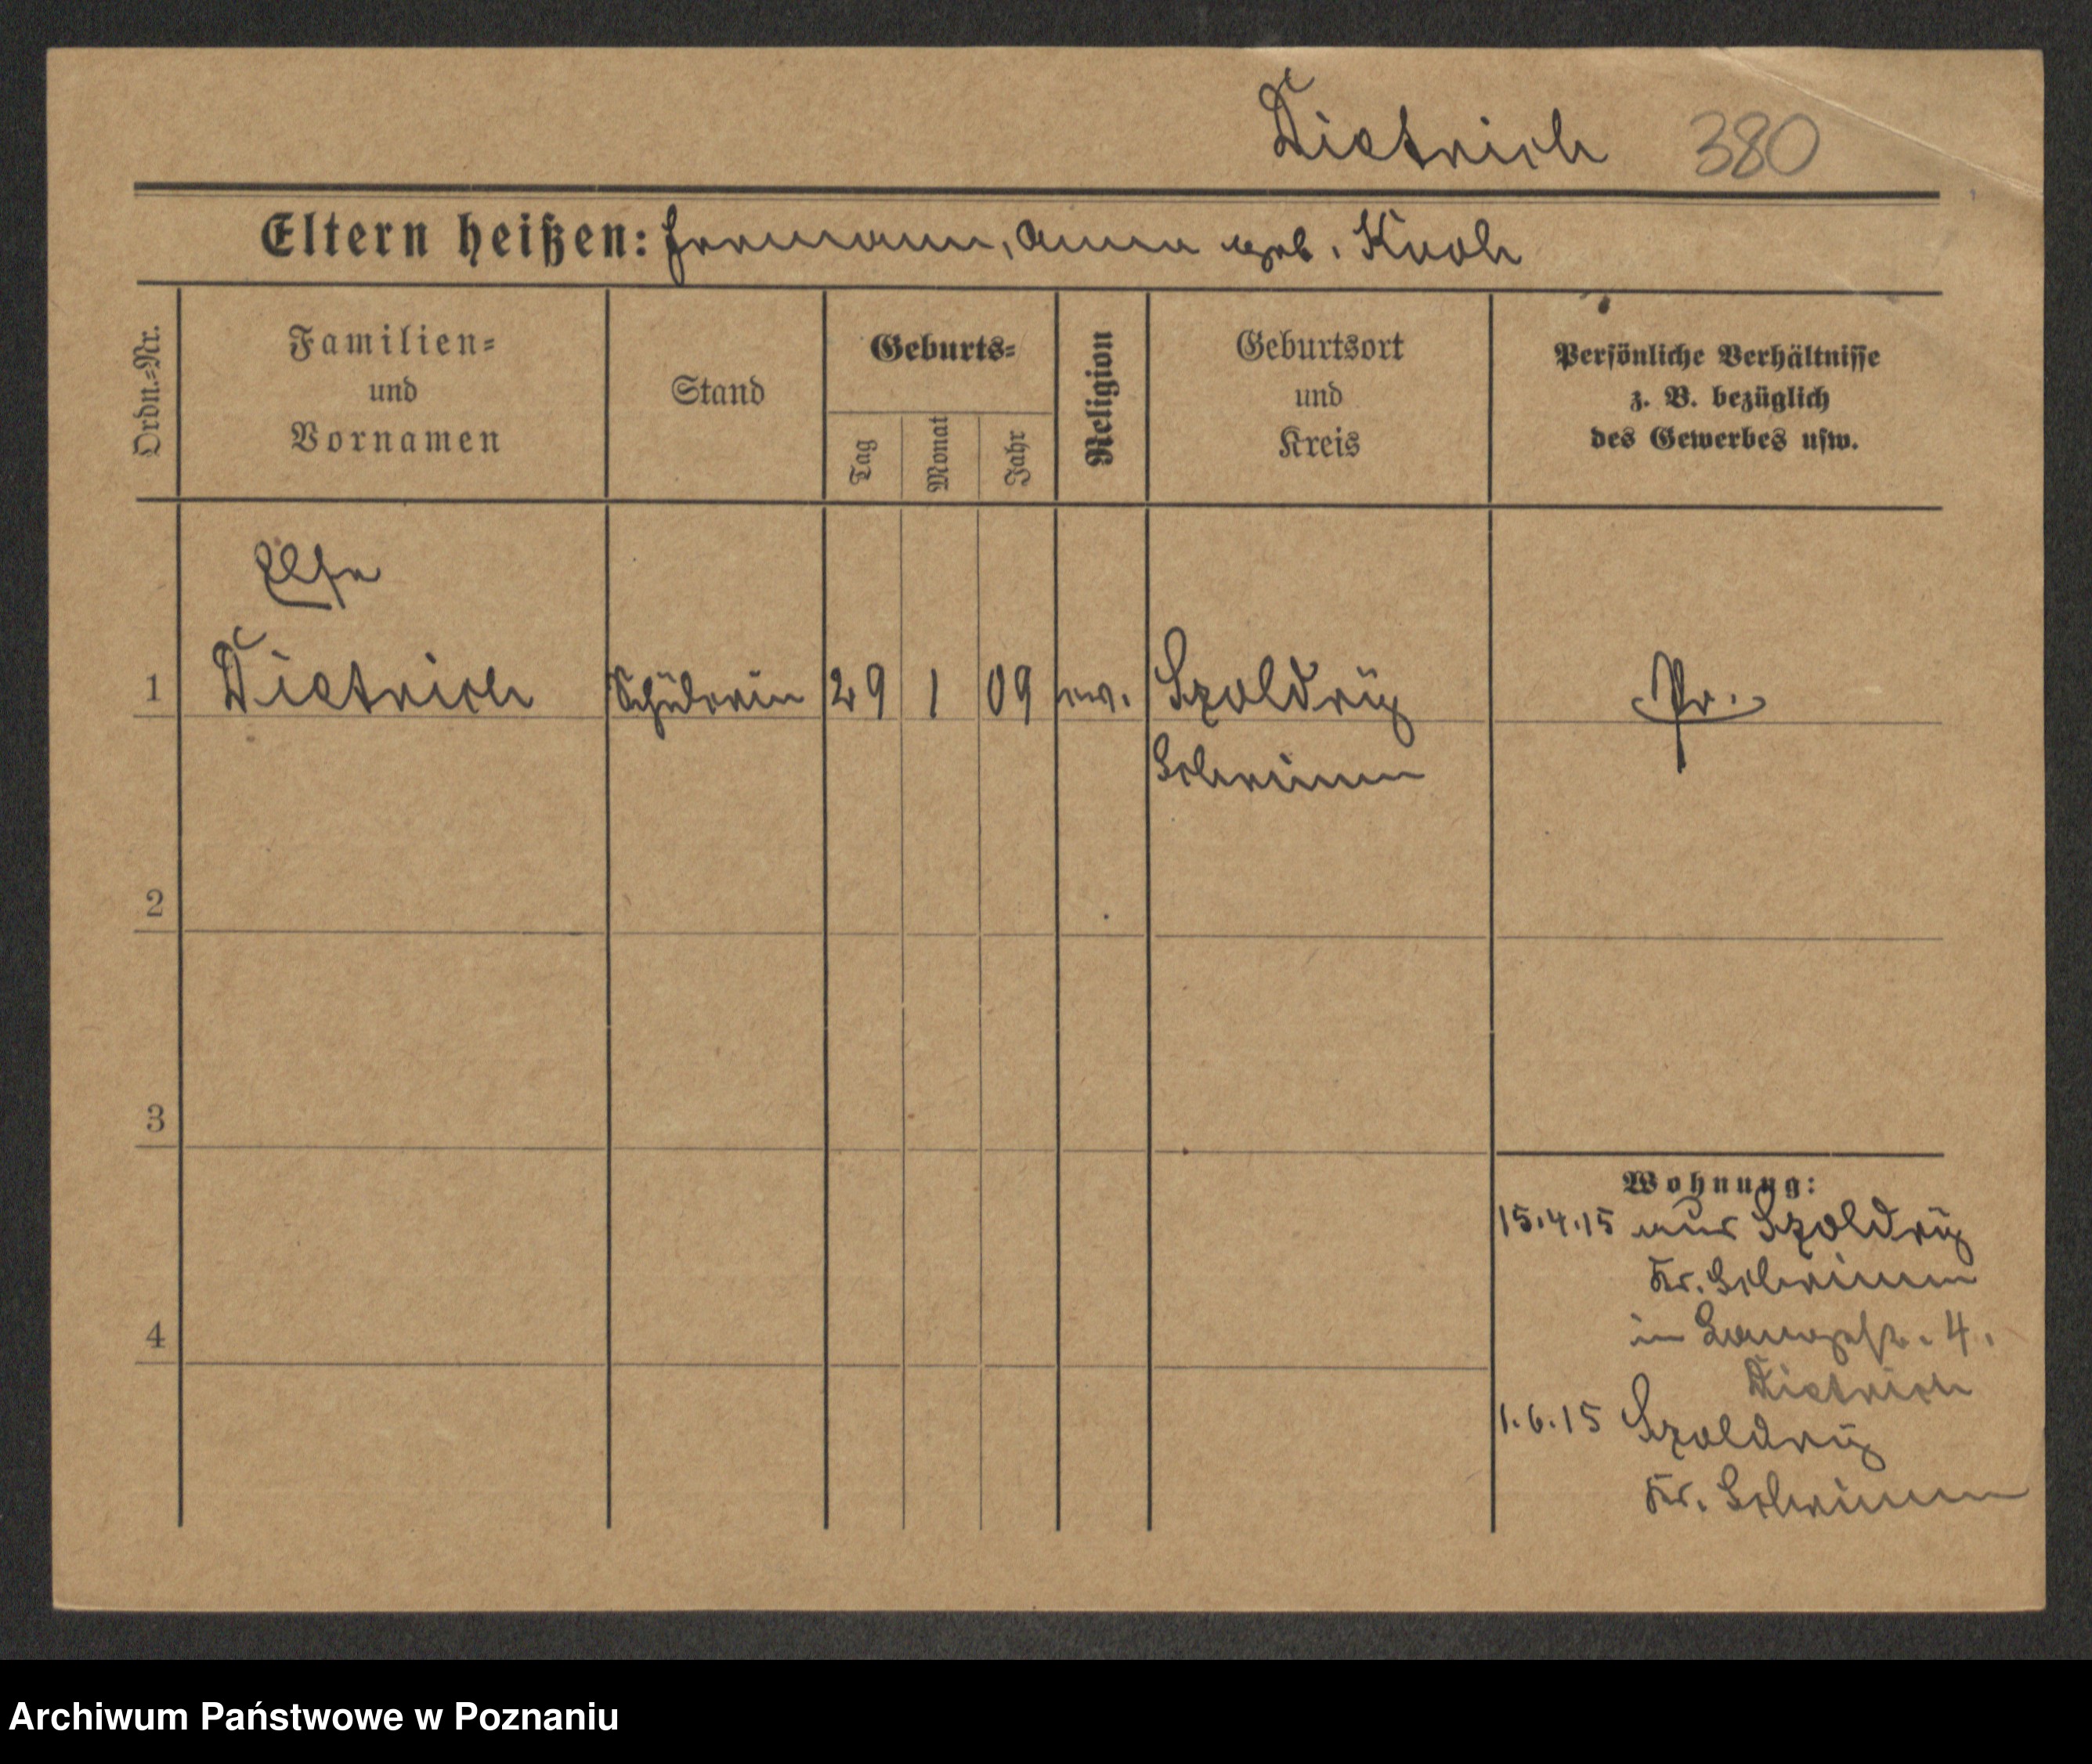 Dietrich 380
Eltern heißen: Hermann, Anna geb. Knoll
Ordn.=Nr.
Familien=
und
Vornamen
Stand
Geburts=
Tag
Monat
Jahr
Religion
Geburtsort
und
Kreis
Persönliche Verhältnisse
z. B. bezüglich
des Gewerbes usw.
Else
1 Dietrich Schülerin 29 1 09 ev. Szoldry Pr.
Schrimm
2
3
Wohnung:
15.4.15 aus Szoldry
Kr. Schrimm
4 in Langestr. 4.
Dietrich
1.6.15 Szoldry
Kr. Schrimm
Archiwum Państwowe w Poznaniu